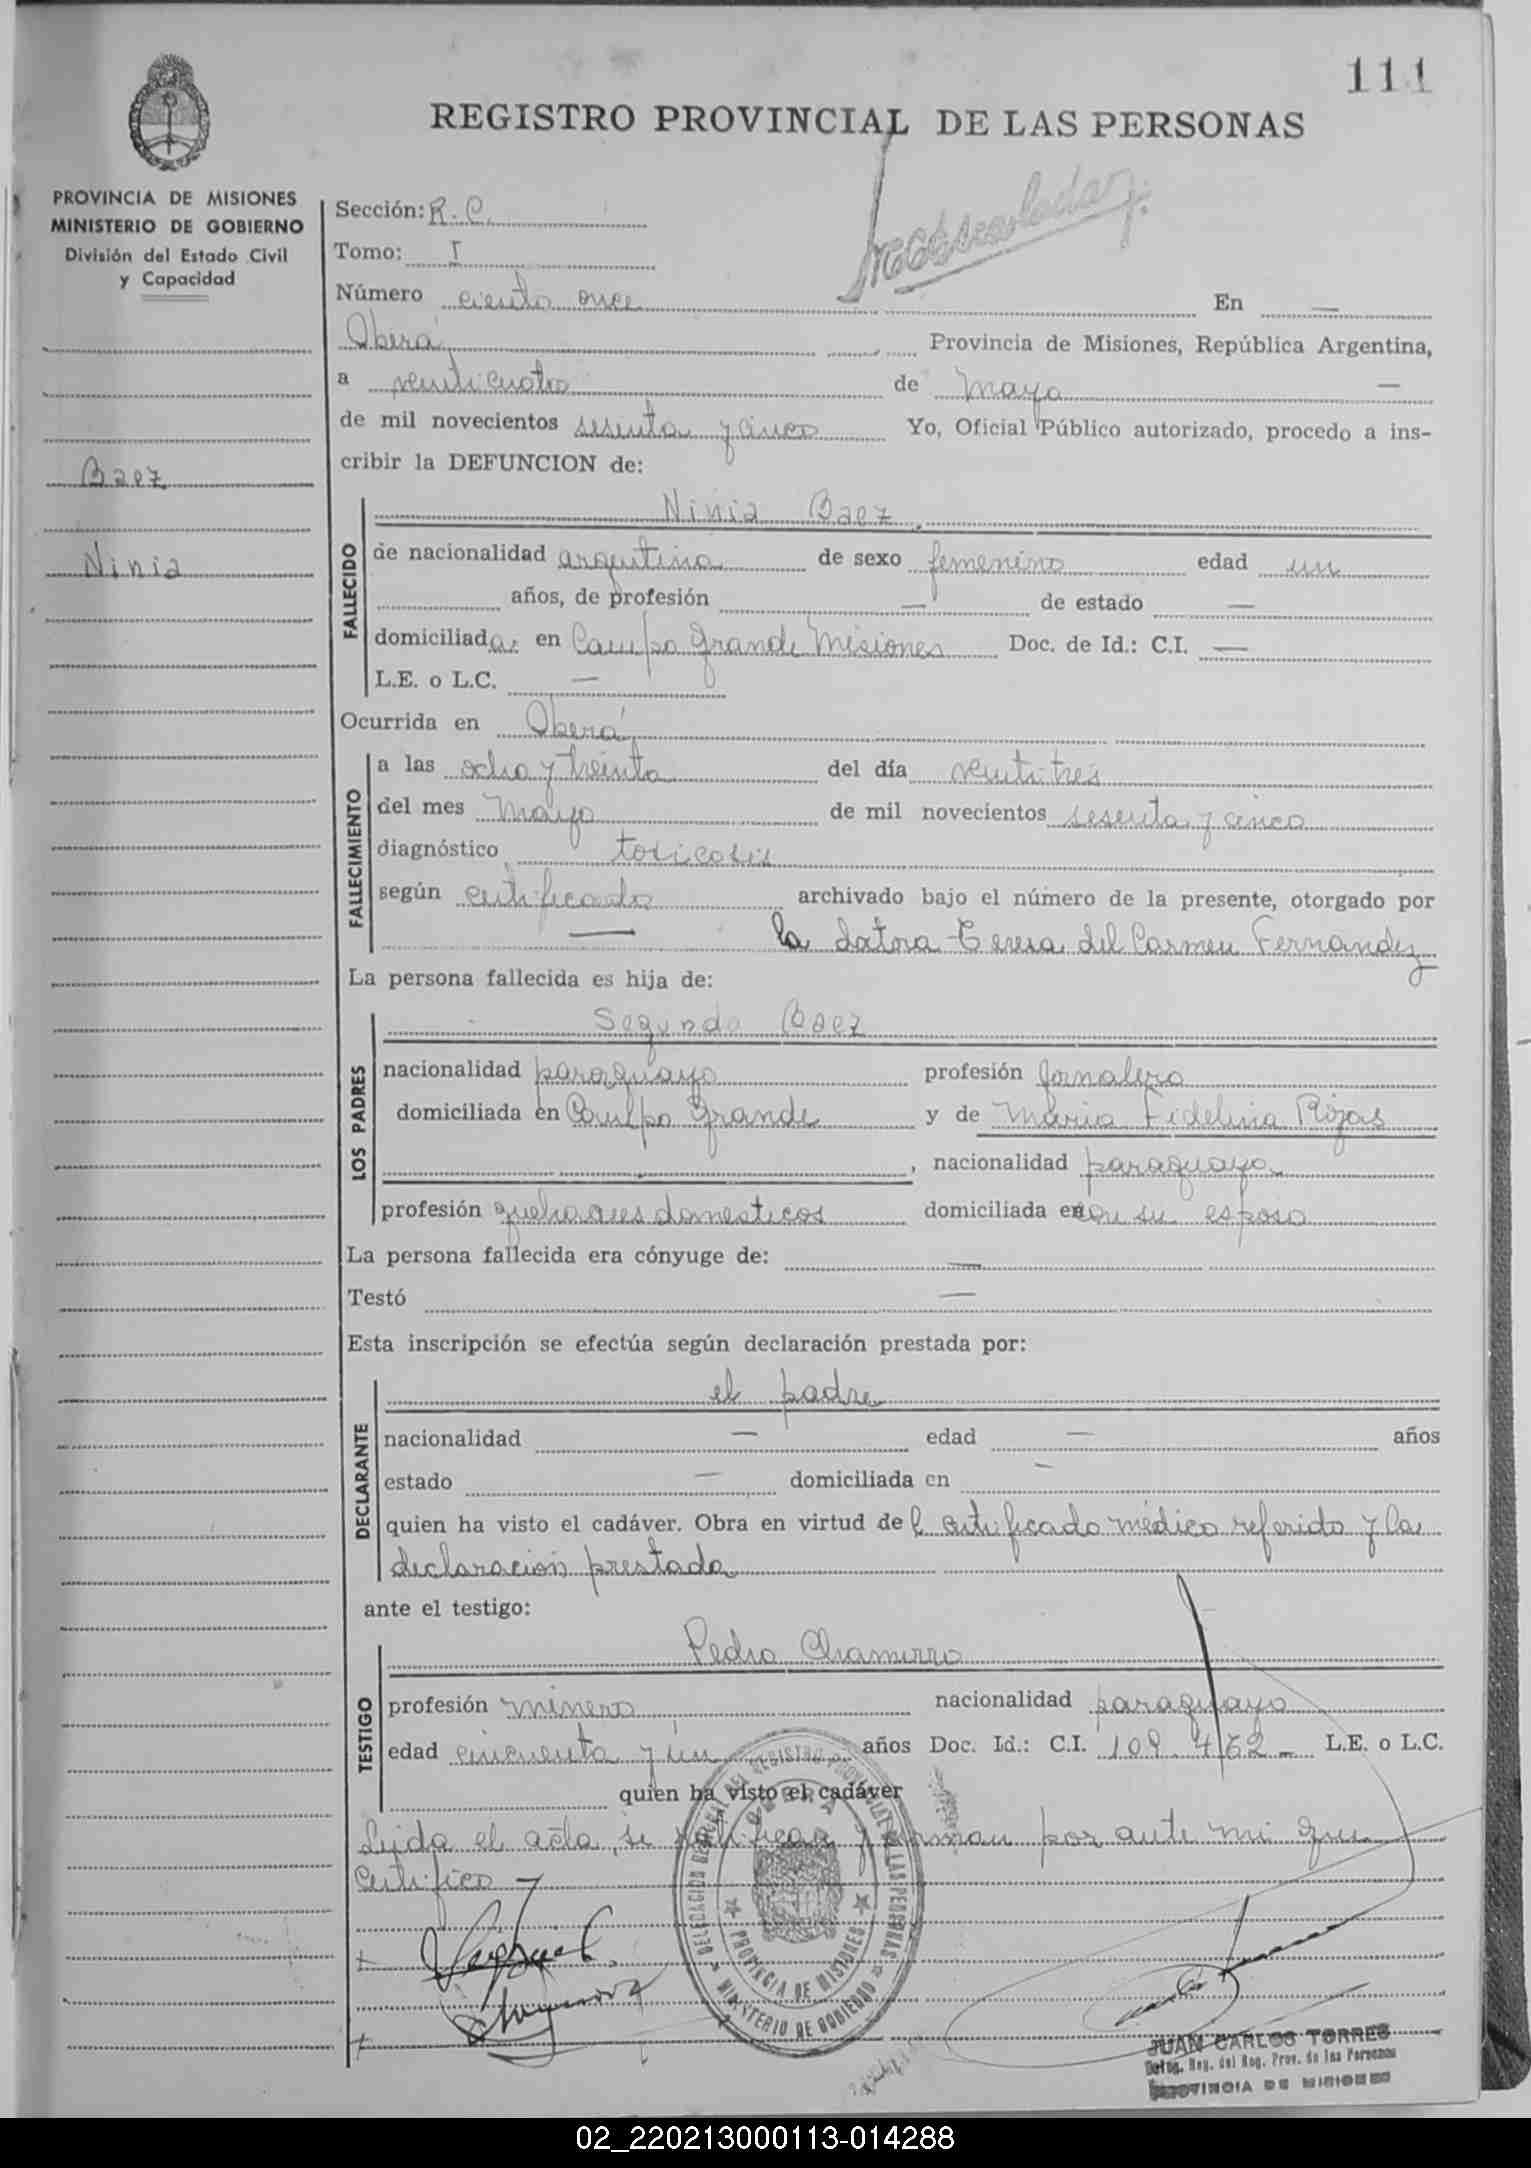 111
REGISTRO PROVINCIAL DE LAS PERSONAS
PROVINCIA DE MISIONES
MINISTERIO DE GOBIERNO
División del Estado Civil
y Capacidad
Baez
Ninia
Sección: R. C.
Tomo: I
Número ciento once En —
Oberá Provincia de Misiones, República Argentina,
a veinticuatro de Mayo —
de mil novecientos sesenta y cinco Yo, Oficial Público autorizado, procedo a ins-
cribir la DEFUNCION de:
FALLECIDO
Ninia Baez
de nacionalidad argentina de sexo femenino edad un
años, de profesión — de estado —
domiciliada en Campo Grande Misiones Doc. de Id.: C.I. —
L.E. o L.C. —
Ocurrida en Oberá
FALLECIMIENTO
a las ocho y treinta del día veintitrés
del mes Mayo de mil novecientos sesenta y cinco
diagnóstico toxicosis
según certificado archivado bajo el número de la presente, otorgado por
— la doctora Teresa del Carmen Fernandez
La persona fallecida es hija de:
LOS PADRES
Segundo Baez
nacionalidad paraguayo profesión Jornalero
domiciliada en Campo Grande y de Maria Fidelina Rojas
, nacionalidad paraguaya
profesión quehaceres domesticos domiciliada en con su esposo
La persona fallecida era cónyuge de: —
Testó —
Esta inscripción se efectúa según declaración prestada por:
DECLARANTE
el padre
nacionalidad — edad — años
estado — domiciliada en —
quien ha visto el cadáver. Obra en virtud del certificado médico referido y la
declaración prestada
ante el testigo:
TESTIGO
Pedro Chamorro
profesión minero nacionalidad paraguayo
edad cincuenta y un años Doc. Id.: C.I. 109.462 — L.E. o L.C.
quien ha visto el cadáver
Leida el acta, se ratifican y firman por ante mi que
Certifico
DELEGACION REGIONAL DEL REGISTRO PROVINCIAL DE LAS PERSONAS
OBERA
PROVINCIA DE MISIONES
MINISTERIO DE GOBIERNO
JUAN CARLOS TORRES
Deleg. Reg. del Reg. Prov. de las Personas
PROVINCIA DE MISIONES
02_220213000113-014288